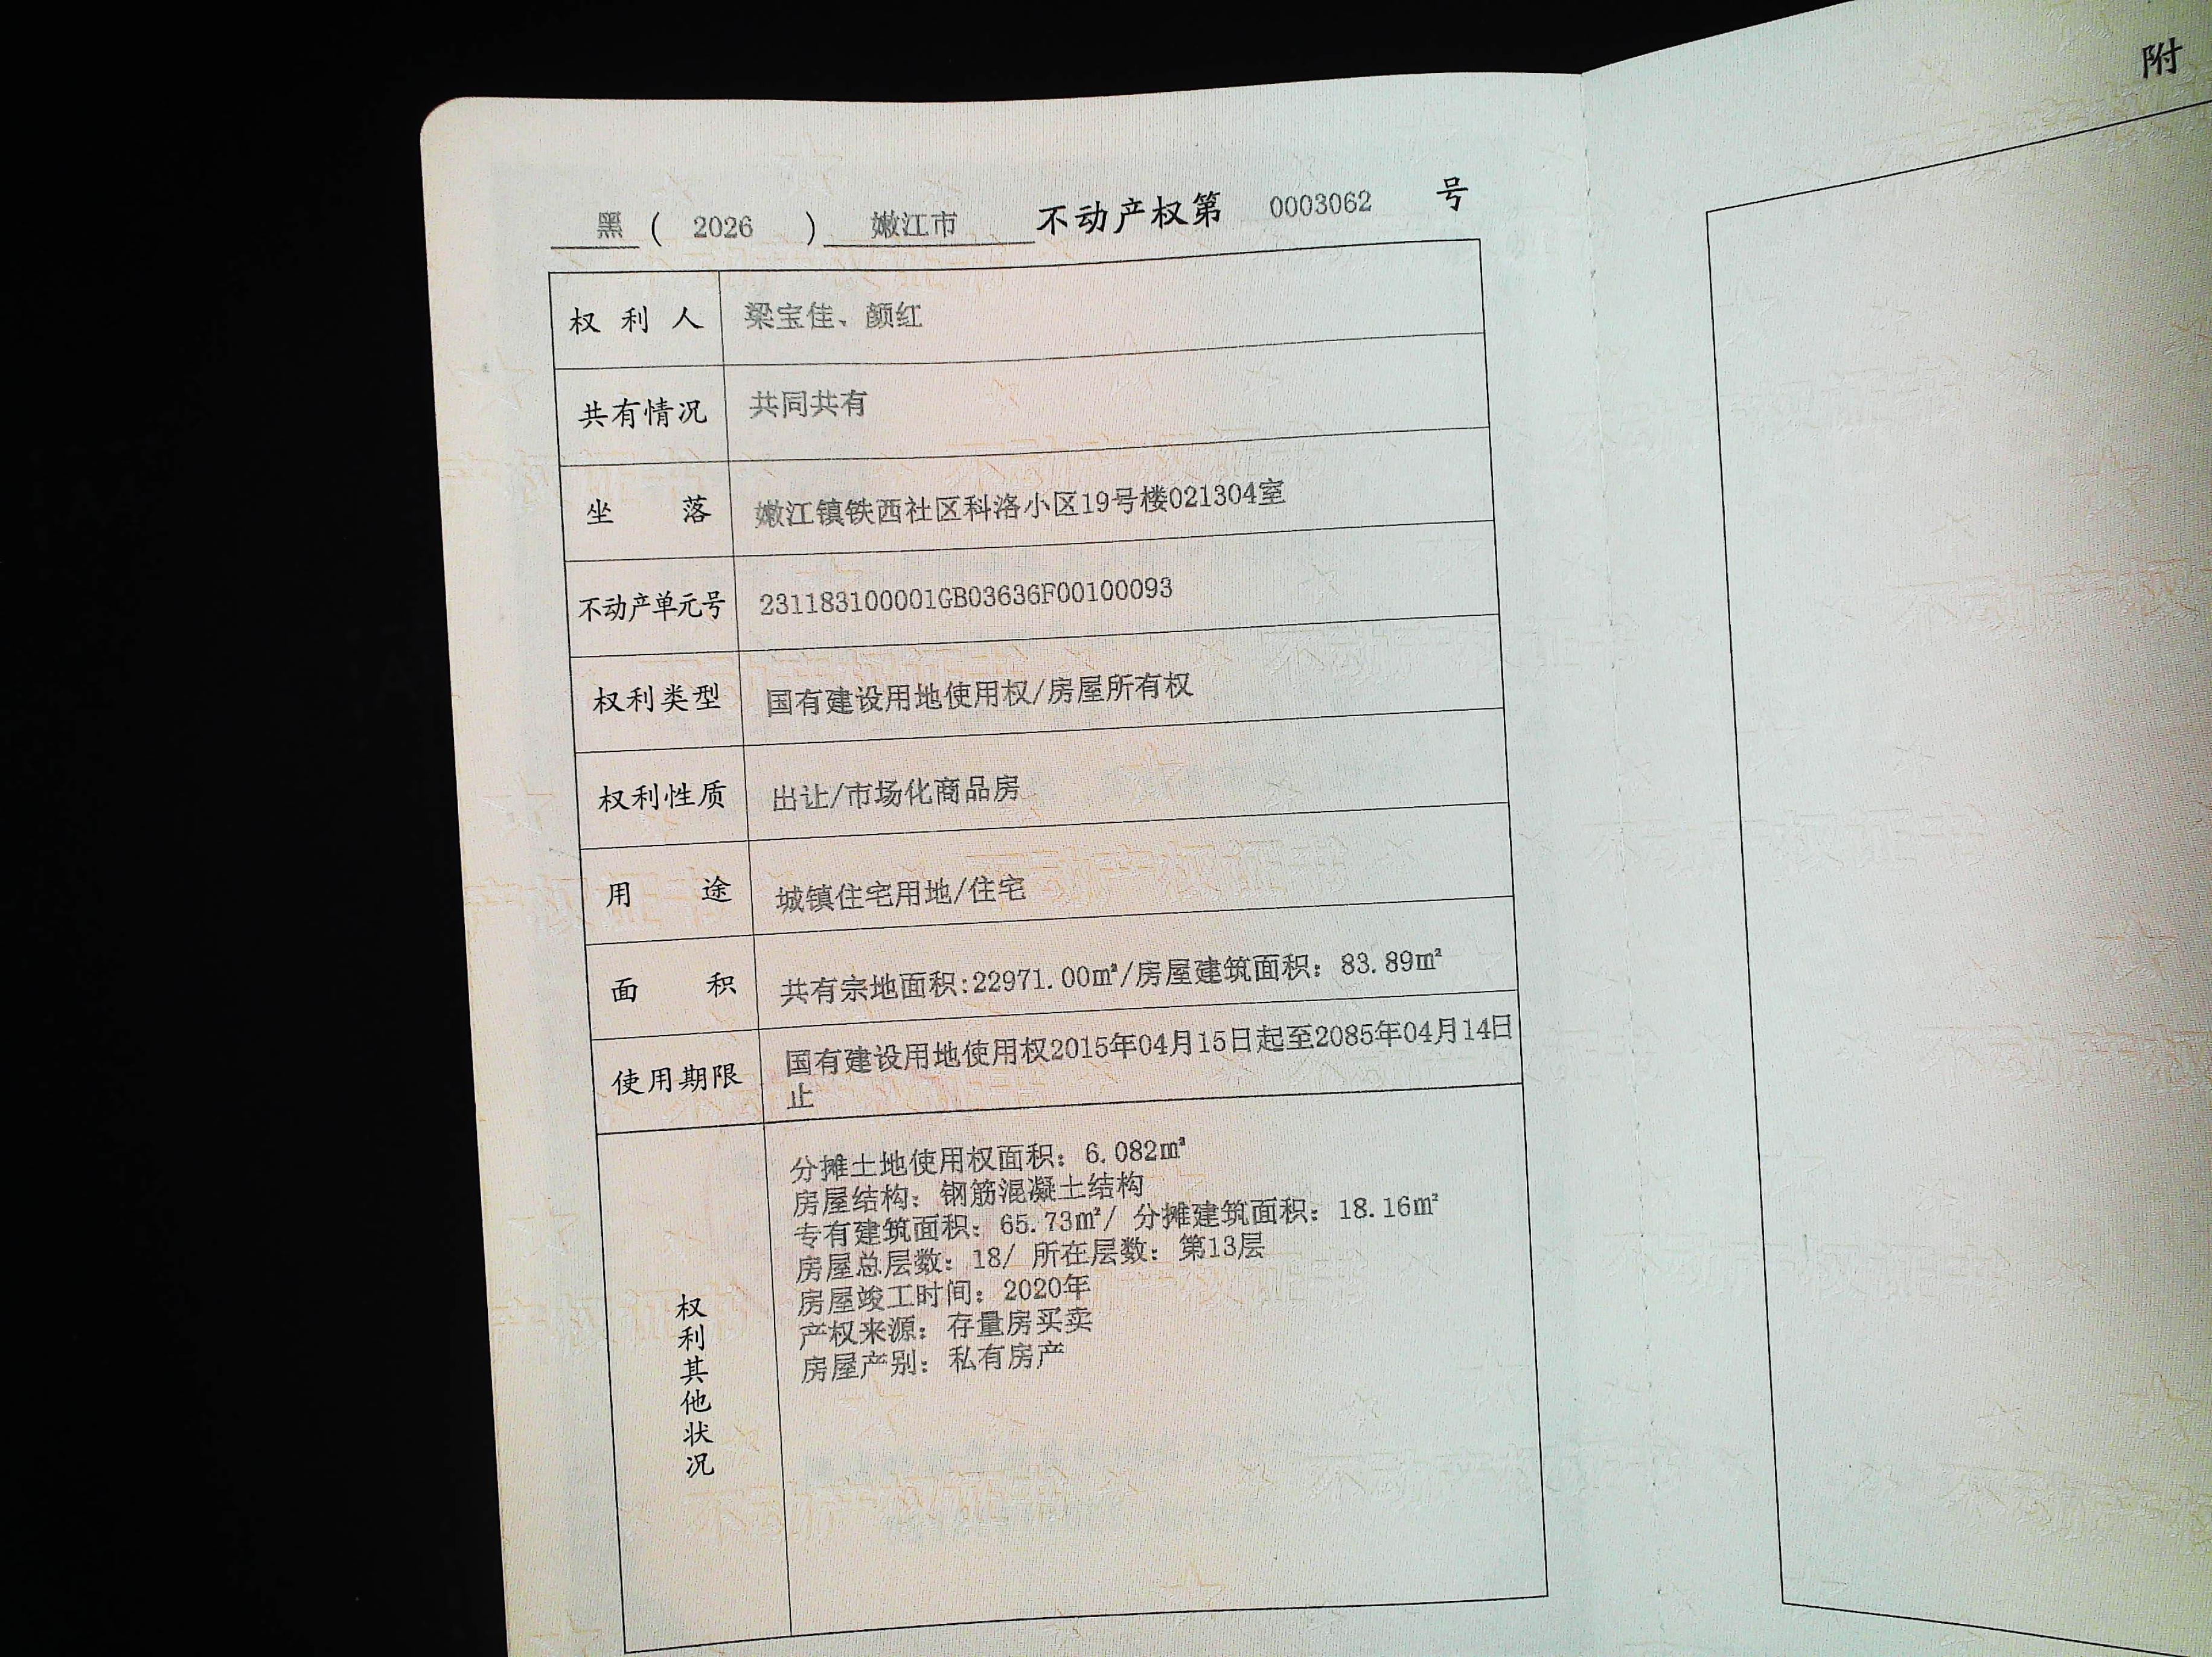 黑 ( 2026 ) 嫩江市 不动产权第 0003062 号
权利人 梁宝佳、颜红
共有情况 共同共有
坐落 嫩江镇铁西社区科洛小区19号楼021304室
不动产单元号 231183100001GB03636F00100093
权利类型 国有建设用地使用权/房屋所有权
权利性质 出让/市场化商品房
用途 城镇住宅用地/住宅
面积 共有宗地面积:22971.00㎡/房屋建筑面积：83.89㎡
使用期限 国有建设用地使用权2015年04月15日起至2085年04月14日
止
权利其他状况
分摊土地使用权面积：6.082㎡
房屋结构：钢筋混凝土结构
专有建筑面积：65.73㎡/ 分摊建筑面积：18.16㎡
房屋总层数：18/ 所在层数：第13层
房屋竣工时间：2020年
产权来源：存量房买卖
房屋产别：私有房产
附